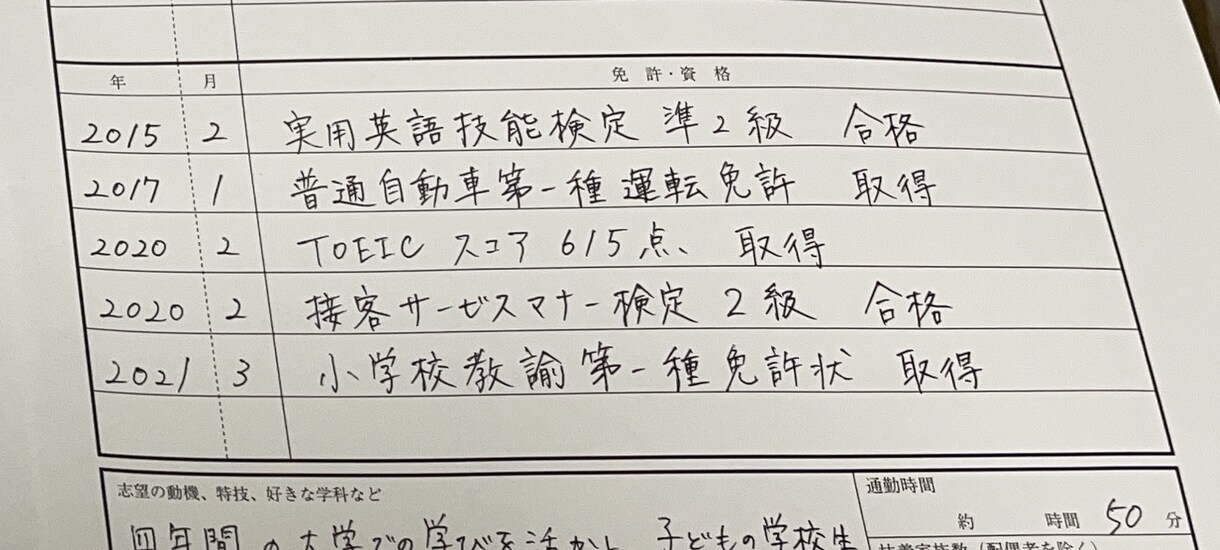 年 月 免許・資格
2015 2 実用英語技能検定 準2級 合格
2017 1 普通自動車第一種運転免許 取得
2020 2 TOEIC スコア 615点、 取得
2020 2 接客サービスマナー検定 2級 合格
2021 3 小学校教諭第一種免許状 取得
志望の動機、特技、好きな学科など
四年間の大学での学びを活かし、子どもの学校生
通勤時間
約 時間 50 分
扶養家族数(配偶者を除く)